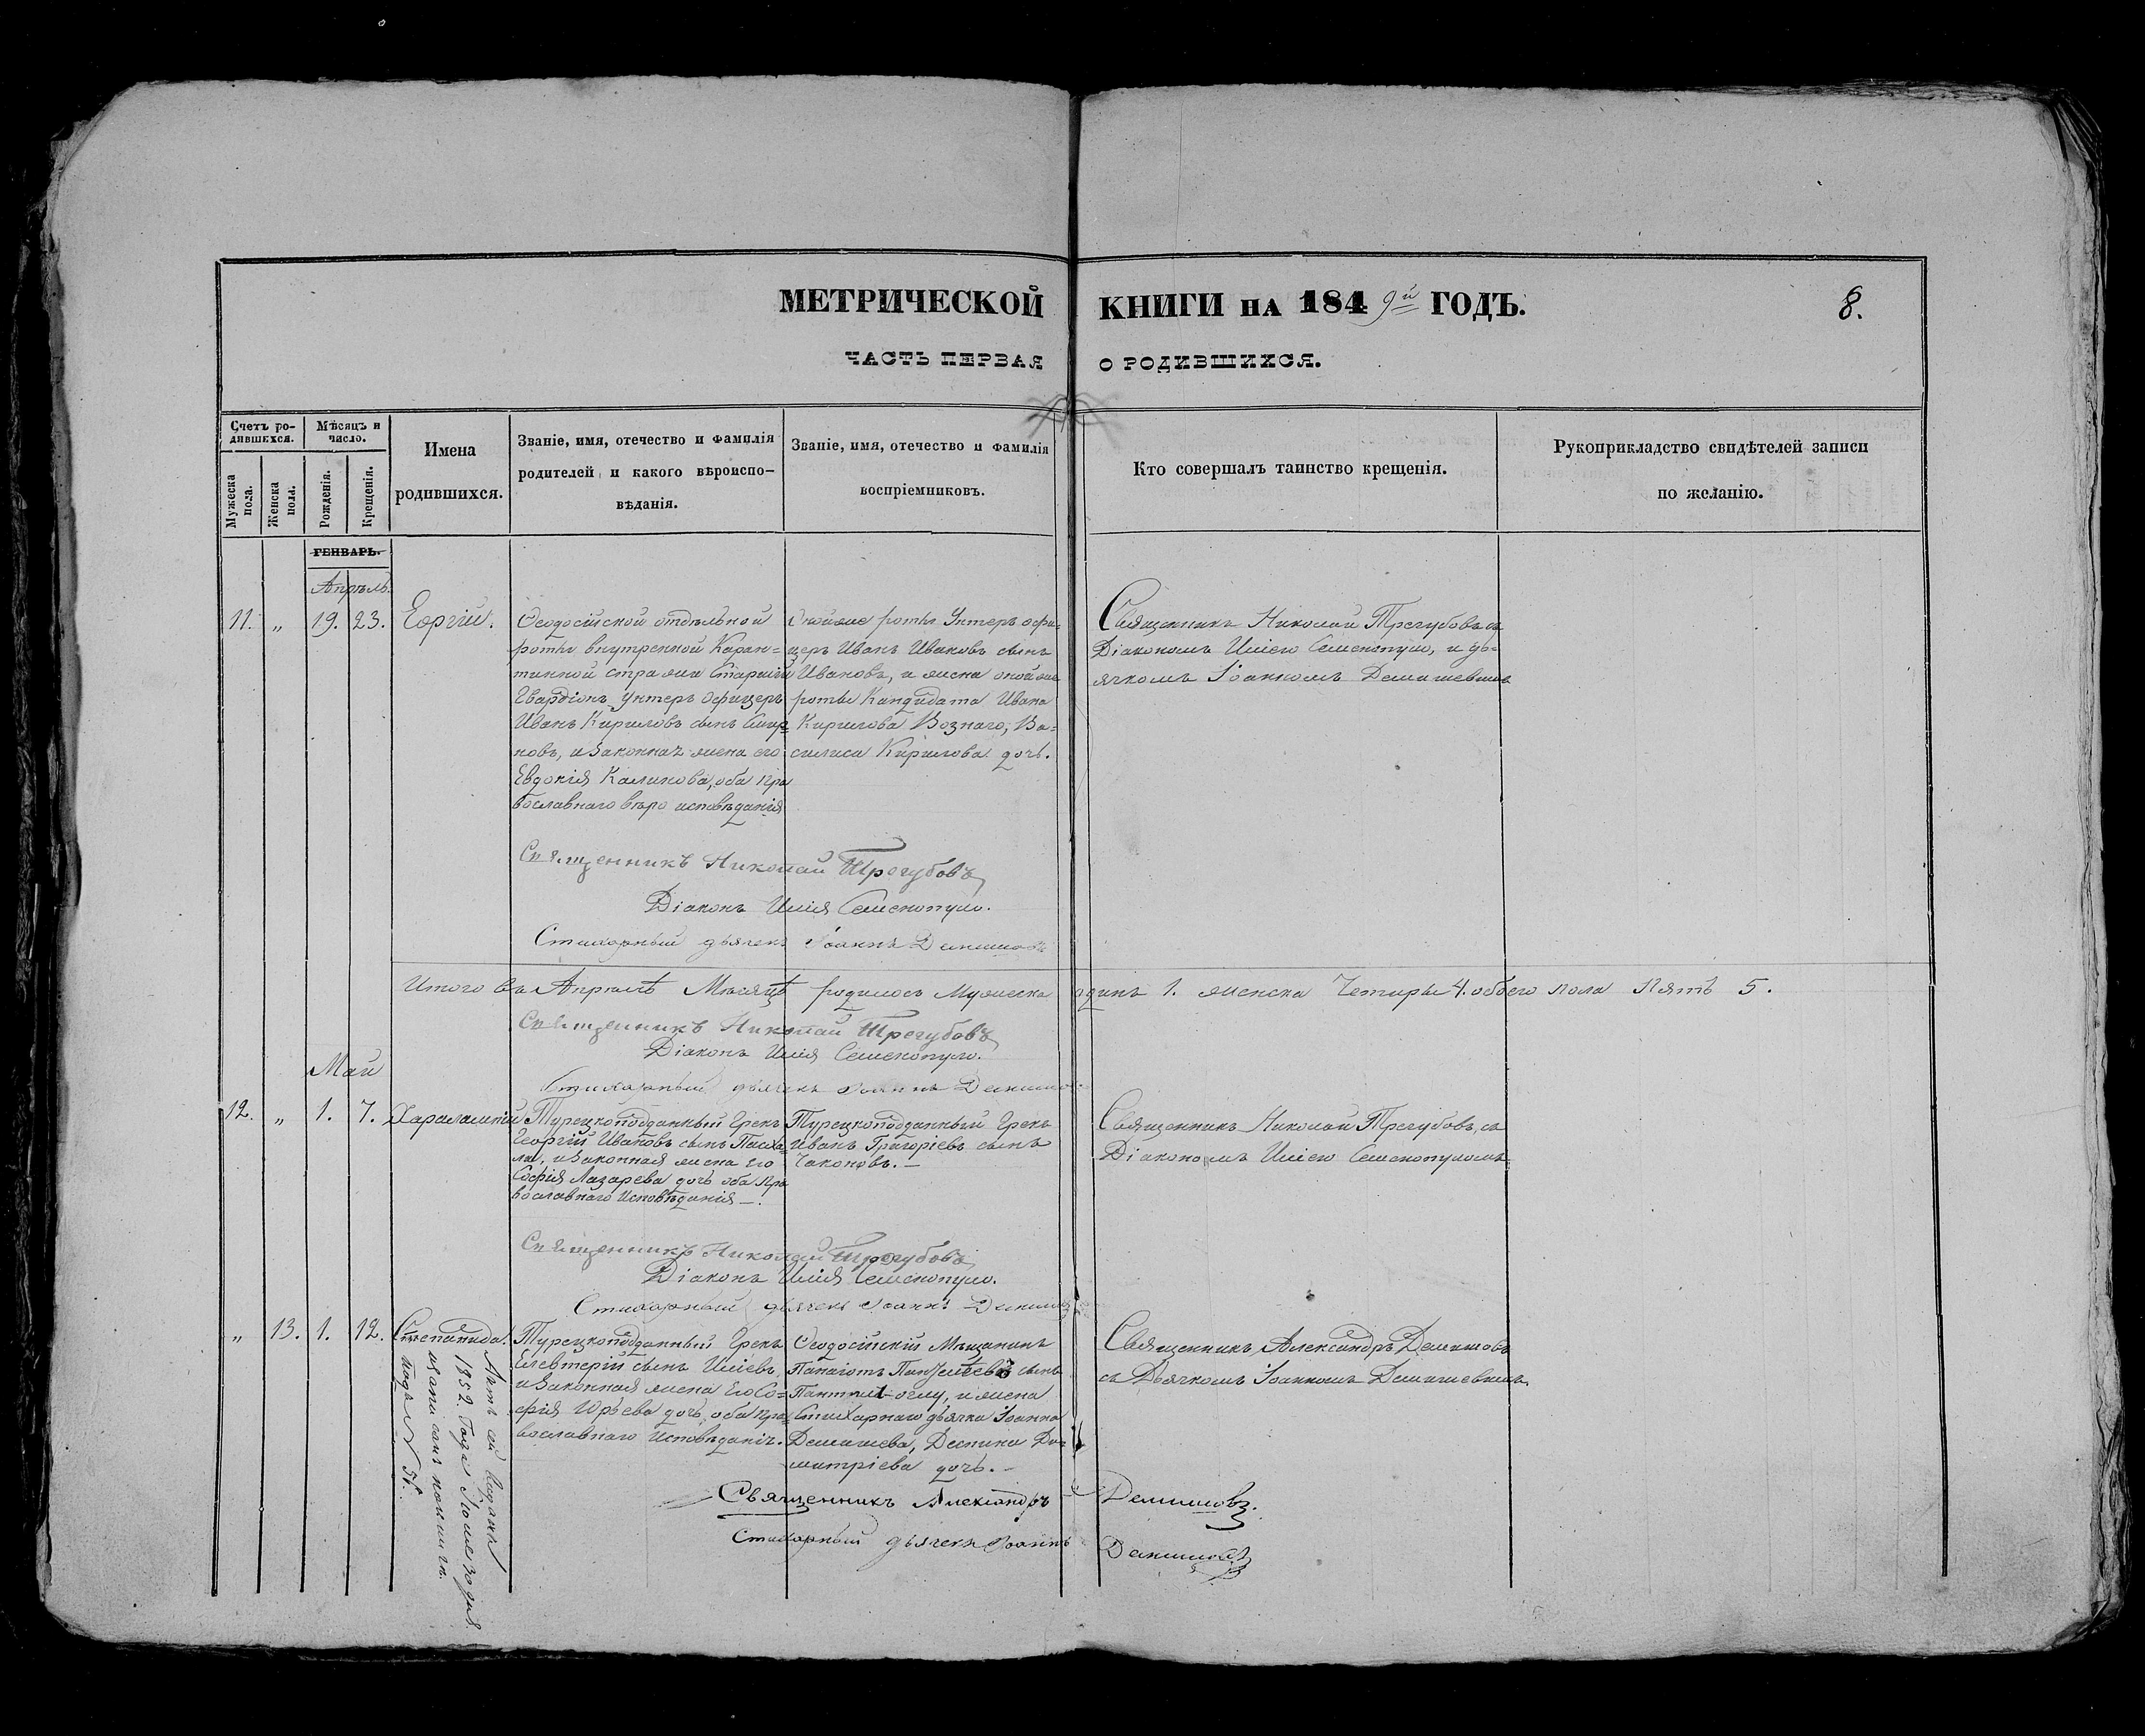 МЕТРИЧЕСКОЙ КНИГИ НА 1849й ГОДЪ.
8.
ЧАСТЬ ПЕРВАЯ О РОДИВШИХСЯ.
Счетъ ро-
дившихся.
Мужеска
пола.
Женска
пола.
Мѣсяцъ и
число.
Рожденія.
Крещенія.
Имена
родившихся.
Званіе, имя, отечество и фамилія
родителей, и какого вѣроиспо-
вѣданія.
Званіе, имя, отечество и фамилія
воспріемниковъ.
Кто совершалъ таинство крещенія.
Рукоприкладство свидѣтелей записи
по желанію.
ГЕНВАРЬ.
Апрѣль.
11. „ 19. 23. Георгій.
Ѳеодосійской отдѣльной
роты внутренной Каран=
тинной стражи Старшій
Гвардіонъ Унтеръ Офицеръ
Иванъ Кириловъ сынъ Смир=
новъ, и законная жена его
Евдокія Каликова, оба пра
вославнаго вѣро исповѣданія
Оной же роты Унтеръ офи=
церъ Иванъ Ивановъ сынъ
Ивановъ, и жена оной же
роты Кандидата Ивана
Кирилова Вознаго, Ва=
силиса Кирилова дочь.
Священникъ Николай Трегубовъ съ
Діакономъ Иліею Семенопуло, и дь=
ячкомъ Іоанномъ Демишевымъ
Священникъ Николай Трегубовъ
Діаконъ Илія Семенопуло.
Стихарный дьячекъ Іоаннъ Демишевъ
Итого въ Апрѣлѣ Мѣсяцѣ родилось Мужеска одинъ 1. женска Четыре 4. обоего пола пять 5.
Священникъ Николай Трегубовъ
Діаконъ Илія Семенопуло.
Стихарный дьячекъ Іоаннъ
Май
12. „ 1. 7. Харалампій
Турецкоподданный Грекъ
Георгій Ивановъ сынъ Пасха=
ли, и законная жена его
Софія Лазарева дочь оба пра
вославнаго Исповѣданія —.
Турецкоподданный Грекъ
Иванъ Григоріевъ сынъ
Чаконовъ. —
Священникъ Николай Трегубовъ, съ
Діакономъ Иліею Семенопуломъ
Священникъ Николай Трегубовъ
Діаконъ Илія Семенопуло.
Стихарный дьячекъ Іоаннъ
„ 13. 1. 12. Степанида.
Турецкоподданный Грекъ
Елевтерій сынъ Иліевъ,
и законная жена Его Со=
фія Юрьева дочь, оба пра=
вославнаго Исповѣданія.
Ѳеодосійскій Мѣщанинъ
Панаіотъ сынъ
и жена
Стихарнаго дьячка Іоанна
Демишева, Деспина Ди=
митріева дочь. —
Священникъ Александръ Демишовъ
съ Дьячкомъ Іоанномъ Демишевымъ.
1852. Года
подъ N 51.
Священникъ Александръ Демишовъ.
Стихарный дьячекъ Іоаннъ Демишовъ